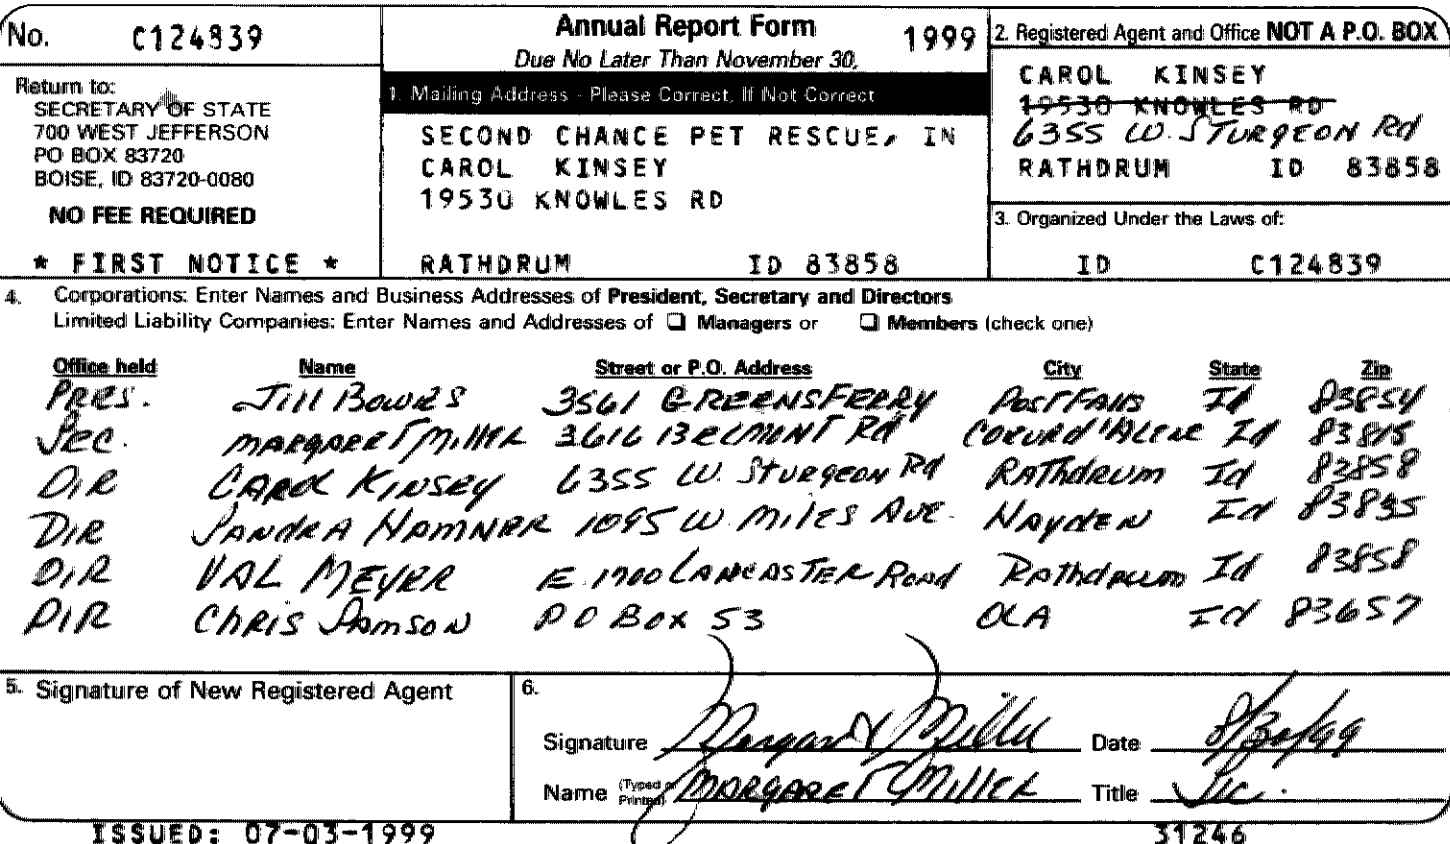 No. C124839
Annual Report Form 1999
Due No Later Than November 30,
Return to:
SECRETARY OF STATE
700 WEST JEFFERSON
PO BOX 83720
BOISE, ID 83720-0080
NO FEE REQUIRED
* FIRST NOTICE *
1. Mailing Address - Please Correct, If Not Correct
SECOND CHANCE PET RESCUE, IN
CAROL KINSEY
19530 KNOWLES RD
RATHDRUM ID 83858
2. Registered Agent and Office NOT A P.O. BOX
CAROL KINSEY
19530 KNOWLES RD
6355 W. STURGEON Rd
RATHDRUM ID 83858
3. Organized Under the Laws of:
ID C124839
4. Corporations: Enter Names and Business Addresses of President, Secretary and Directors
Limited Liability Companies: Enter Names and Addresses of ❑ Managers or ❑ Members (check one)
Office held Name Street or P.O. Address City State Zip
PRES. Jill Bowes 3561 GREENSFERRY Post Falls Id 83854
Sec. MARGARET Miller 3616 BELMONT Rd COEUR d'ALENE Id 83815
DIR CAROL KINSEY 6355 W. STURGEON Rd RATHDRUM Id 83858
DIR SANDRA HAMNER 1095 W. Miles Ave. HAYDEN Id 83835
DIR VAL MEYER E. 1700 LANCASTER Road Rathdrum Id 83858
DIR Chris Samson P O Box 53 OLA Id 83657
5. Signature of New Registered Agent
6.
Signature Margaret Miller Date 8/30/99
Name (Typed or Printed) MARGARET Miller Title Sec.
ISSUED: 07-03-1999 31246